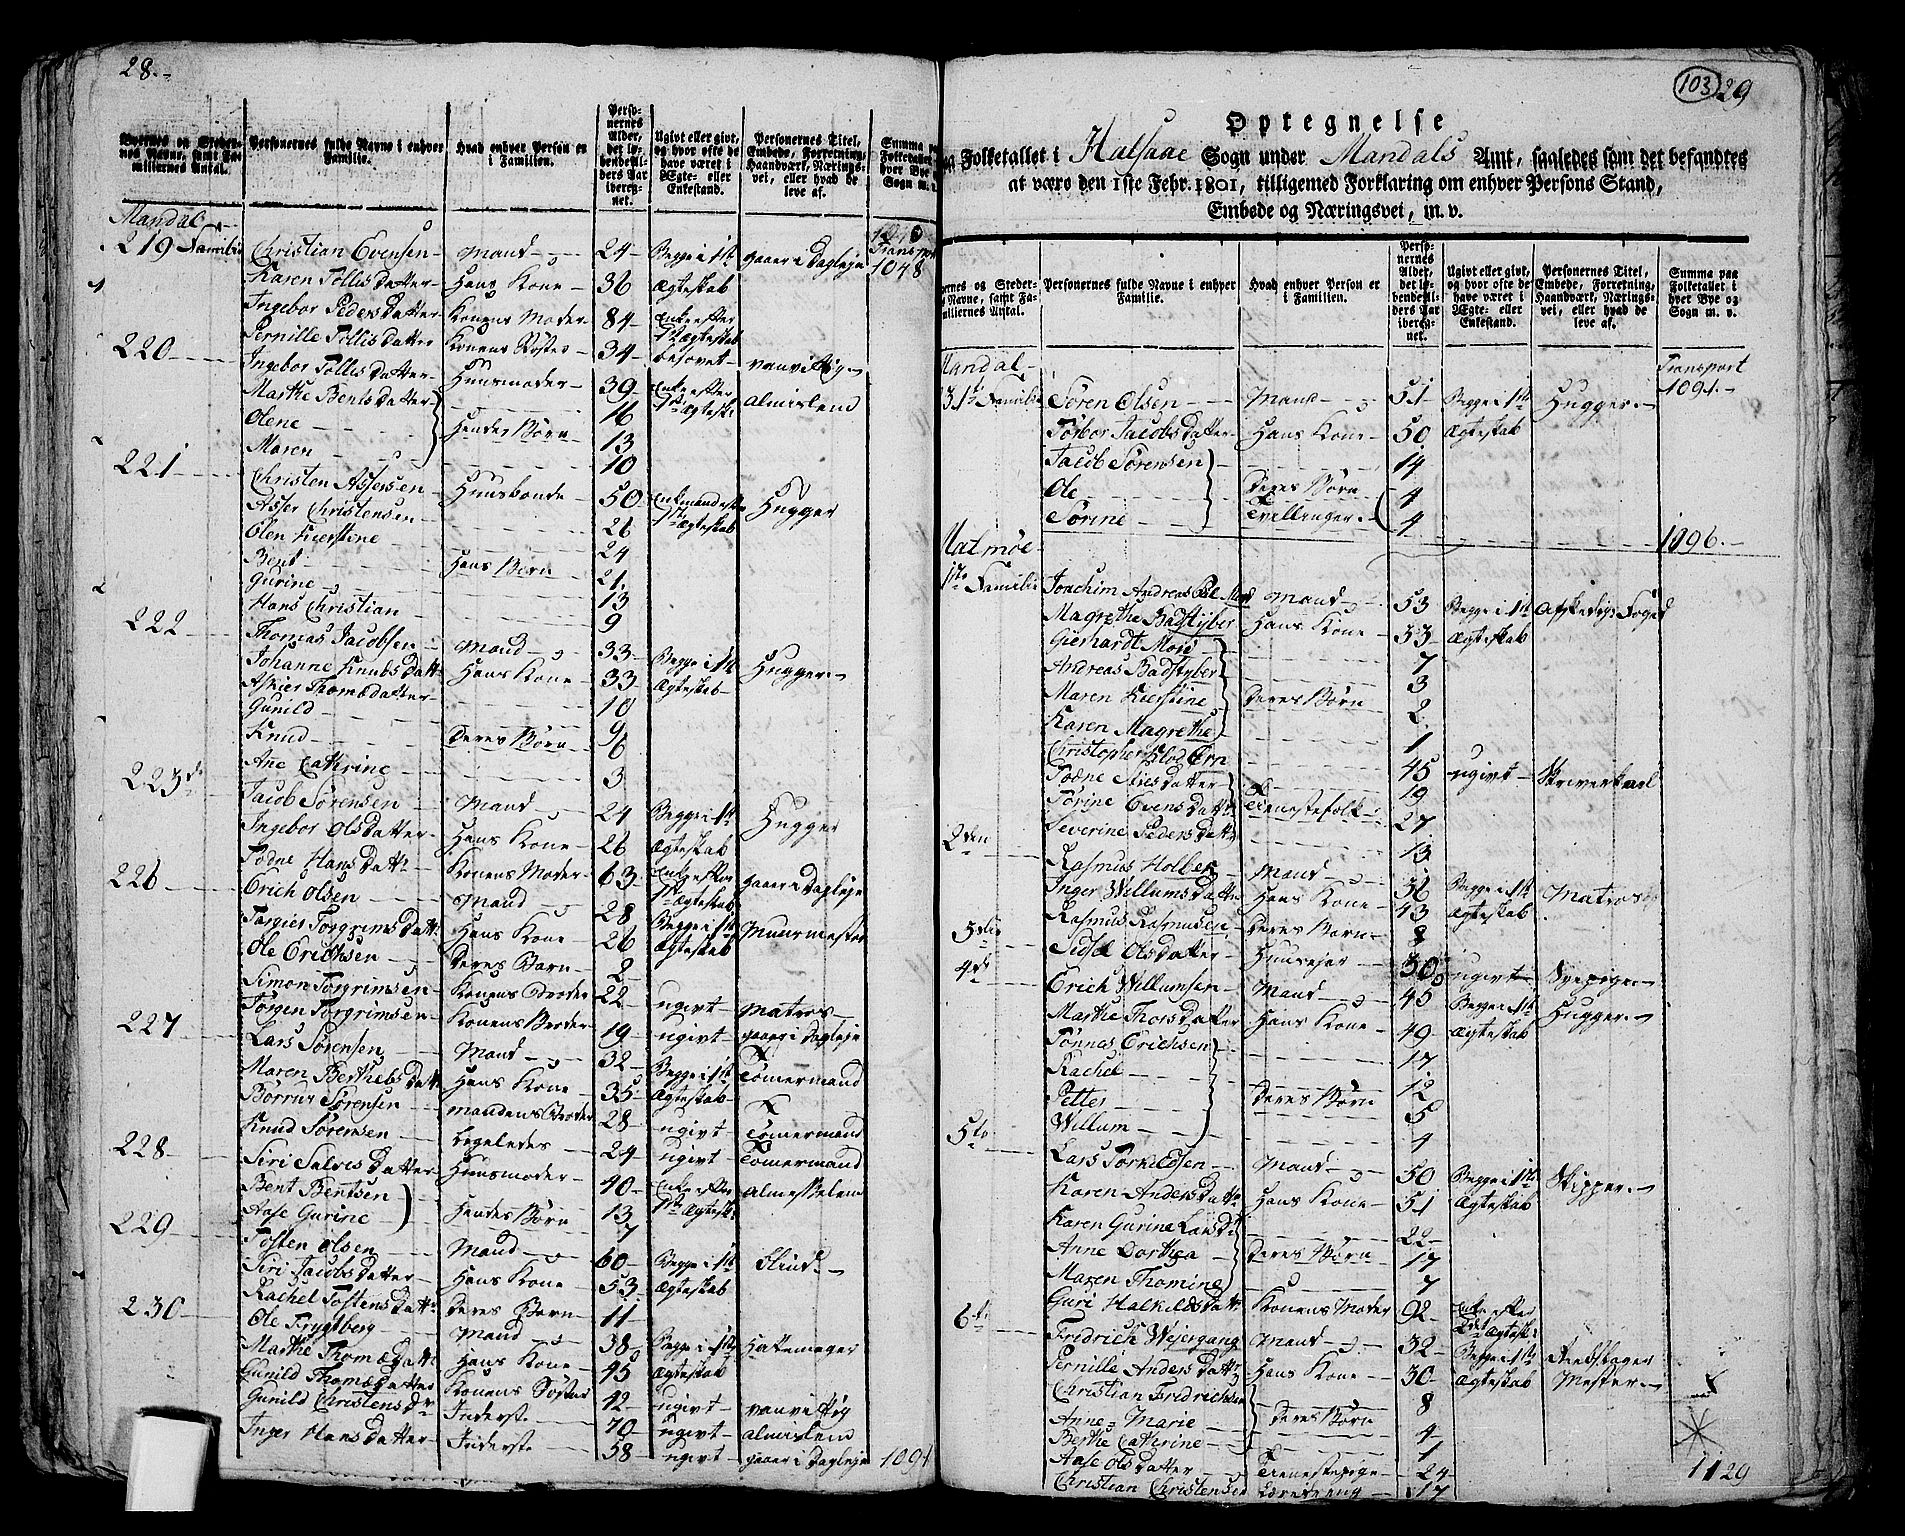 28.
Byernes og Stedernes Navne, samt Familiernes Antal.
Personernes fulde Navne i enhver Familie.
Hvad enhver Person er i Familien.
Personernes Alder, det løbendeAlders Aar iberegnet.
Ugivt eller givt, og hvor ofte de have været i Ægte- eller Enkestand.
Personernes Titel, Embede, Forretning, Haandværk, Næringsvei, eller hvad de leve af.
Summa Folketallet hver Bye Sogn m.
Mandal
Transport 1048
219 Familie Christian Evensen Mand 24 Begge i 1ste gaaer i Dagleje
Karen Tollisdatter Hans Kone 36 Ægteskab
Ingebor Pedersdatter Konens Moder 84 Enke efter 1ste Ægteskab
Pernille Tollisdatter Konens Søster 34 besovet vanvittig
220 Ingebor Tollisdatter Huusmoder 39 Enke efter 1ste Ægtesk: Almislem
Marthe Bentsdatter 16
Olene Hendes Børn 13
Maren 10
221 Christen Assersen Huusbonde 50 Enkemand efter 1ste Ægteskab Hugger
Asser Christensen 26
Olen Kierstine 24
Bent Hans Børn 21.
Gurine 13
Hans Christian 9
222 Thomas Jacobsen Mand 33 Begge i 1ste Hugger
Johanne Knudsdatt: Hans Kone 33 Ægteskab
Askier Thomædatter 10
Gunild 9
Knud Deres Børn 6
Ane Cathrine 3
223de Jacob Sørensen Mand 24 Begge i 1ste Hugger
Ingebor Olsdatter Hans Kone 26 Ægteskab
Todne Hansdatt: Konens Moder 63 Enke efter 1ste Ægteskab gaaer i Dagleje
226 Erich Olsen Mand 28 Begge i 1ste Muurmester
Targier Torgrimsdatt: Hans Kone 26 Ægteskab
Ole Erichsen Deres Barn 2
Simon Torgrimsen Konens Broder 22 ugivt Matros
Jørgen Torgrimsen Konens Broder 19 ugivt gaaer i Dagleje
227 Lars Sørensen Mand 32 Begge i 1ste Tømermand
Maren Berthelsdatt: Hans Kone 35 Ægteskab
Børruf Sørensen Mandens Broder 28 ugivt Tømermand
Knud Sørensen Ligeledes 24 ugivt Tømermand
228 Siri Salvesdatter Huusmoder 40 Enke efter 1ste Ægtesk: Almisselem
Bent Bentsen 13
Aase Gurine Hendes Børn 7
229 Tosten Olsen Mand 60 Begge i 1ste Blind
Siri Jacobsdatter Hans Kone 53 Ægteskab
Rachel Tostensdatt: Deres Barn 11
230 Ole Frygtberg Mand 38 Begge i 1ste Hattemager
Marthe Thomædatt: Hans Kone 45 Ægteskab
Gunild Thomædatter Konens Søster 42 ugivt vanvittig
Gunild Christensd: Inderste 70 ugivt Almislem
Inger Hansdatter Inderste 58 ugivt gaaer i Dagleje 1091
103
29
Optegnelse
Folketallet i Halsaae Sogn under Mandals Amt, saaledes som det befandtes
at være den 1ste Febr. 1801, tilligemed Forklaring om enhver Persons Stand,
Embede og Næringsvei, m. v.
Personernes fulde Navne i enhver Familie.
Hvad enhver Person er i Familien.
Personernes Alder, det løbendeAlders Aar iberegnet.
Ugivt eller givt, og hvor ofte de have været i Ægte- eller Enkestand.
Personernes Titel, Embede, Forretning, Haandværk, Næringsvei, eller hvad de leve af.
Summa paa Folketallet i hver Bye og Sogn m. v.
Mandal
Transport 1091.
31te Familie Søren Olsen Mand 51 Begge i 1ste Hugger
Torbor Jacobsdatter Hans Kone 50 Ægteskab
Jacob Sørensen 14
Ole Deres Børn 4
Sørine Tvillinger 4
1096.
Malmøe
1ste Familie Joachim Andreas Mand 53 Begge i 1ste Afskediget Foged
Magrethe Badstyber Hans Kone 33 Ægteskab
Gierhardt Moie 7
Andreas Badstyber 3
Maren Kierstine Deres Børn 2
Karen Magrethe 1
Christopher Blod Ørn 45 ugivt Skriverkarl
Todne Aiesdatter 19
Sørine Evensdatt: Tienestefolk 27
Severine Pedersdatt: 13
2den Rasmus Holbek Mand 36 Begge i 1ste Matros
Inger Willumsdatt: Hans Kone 43 Ægteskab
Rasmus Rasmusen Deres Barn 8
3die Sidsel Olsdatter 50 ugivt
4de Erich Willumsen Mand 45 Begge i 1ste Hugger
Marthe Thorsdatter Hans Kone 49 Ægteskab
Tønnes Erichsen 17
Rachel 12
Petter Deres Børn 5
Willum 4
5te Lars Torkildsen Mand 50 Begge i 1ste Skipper
Karen Andersdatt: Hans Kone 51 Ægteskab
Karen Gurine Larsdt: 22
Anne Dorthea Deres Børn 17
Maren Thomine 7
Guri Halkildsdatt: Konens Moder 92 Enke efter 2det Ægtesk:
6te Fridrich Wejergang Mand 32 Begge i 1ste Rebslager
Pernille Andersdatt: Hans Kone 30 Ægteskab Mester
Christian Fridrichsen 8
Anne Marie Deres Børn 4
Berthe Cathrine 1
Aase Olsdatter Tienestepige 24
Christian Christensen Læredreng 17
1129